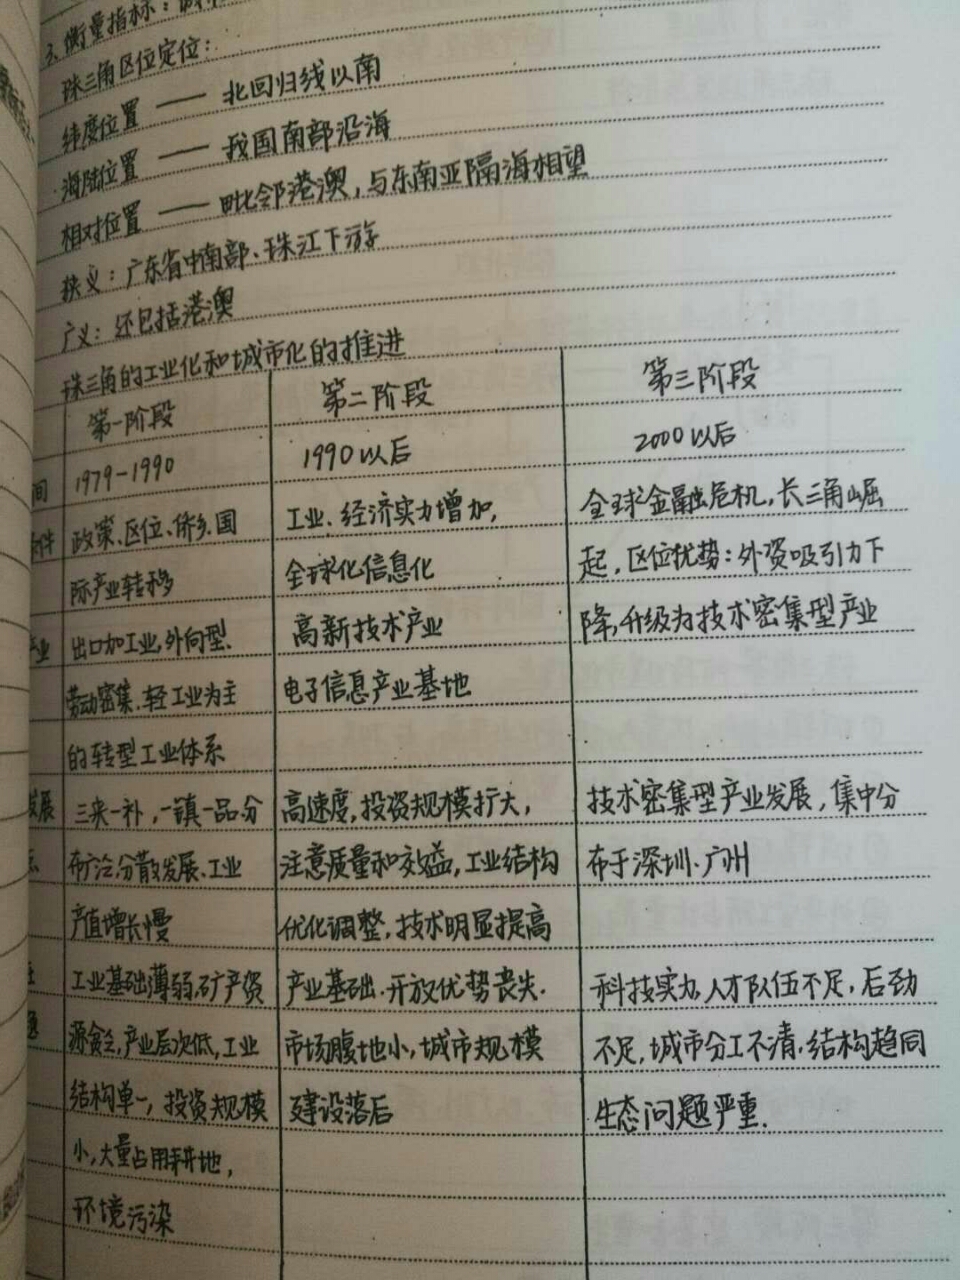 3.衡量指标：城
珠三角区位定位：
纬度位置 —— 北回归线以南
海陆位置 —— 我国南部沿海
相对位置 —— 毗邻港澳，与东南亚隔海相望
狭义：广东省中南部、珠江下游
广义：还包括港澳
珠三角的工业化和城市化的推进
第一阶段 第二阶段 第三阶段
间 1979-1990 1990以后 2000以后
件 政策、区位、侨乡、国 工业、经济实力增加， 全球金融危机，长三角崛
际产业转移 全球化信息化 起，区位优势：外资吸引力下
产业 出口加工业，外向型、 高新技术产业 降，升级为技术密集型产业
劳动密集、轻工业为主 电子信息产业基地
的转型工业体系
发展 三来一补，一镇一品、分 高速度，投资规模扩大， 技术密集型产业发展，集中分
布广泛、分散发展、工业 注意质量和效益，工业结构 布于深圳、广州
产值增长慢 优化调整，技术明显提高
工业基础薄弱、矿产资 产业基础、开放优势丧失、 科技实力、人才队伍不足，后劲
题 源贫乏，产业层次低，工业 市场腹地小，城市规模 不足，城市分工不清，结构趋同
结构单一，投资规模 建设落后 生态问题严重.
小，大量占用耕地，
环境污染